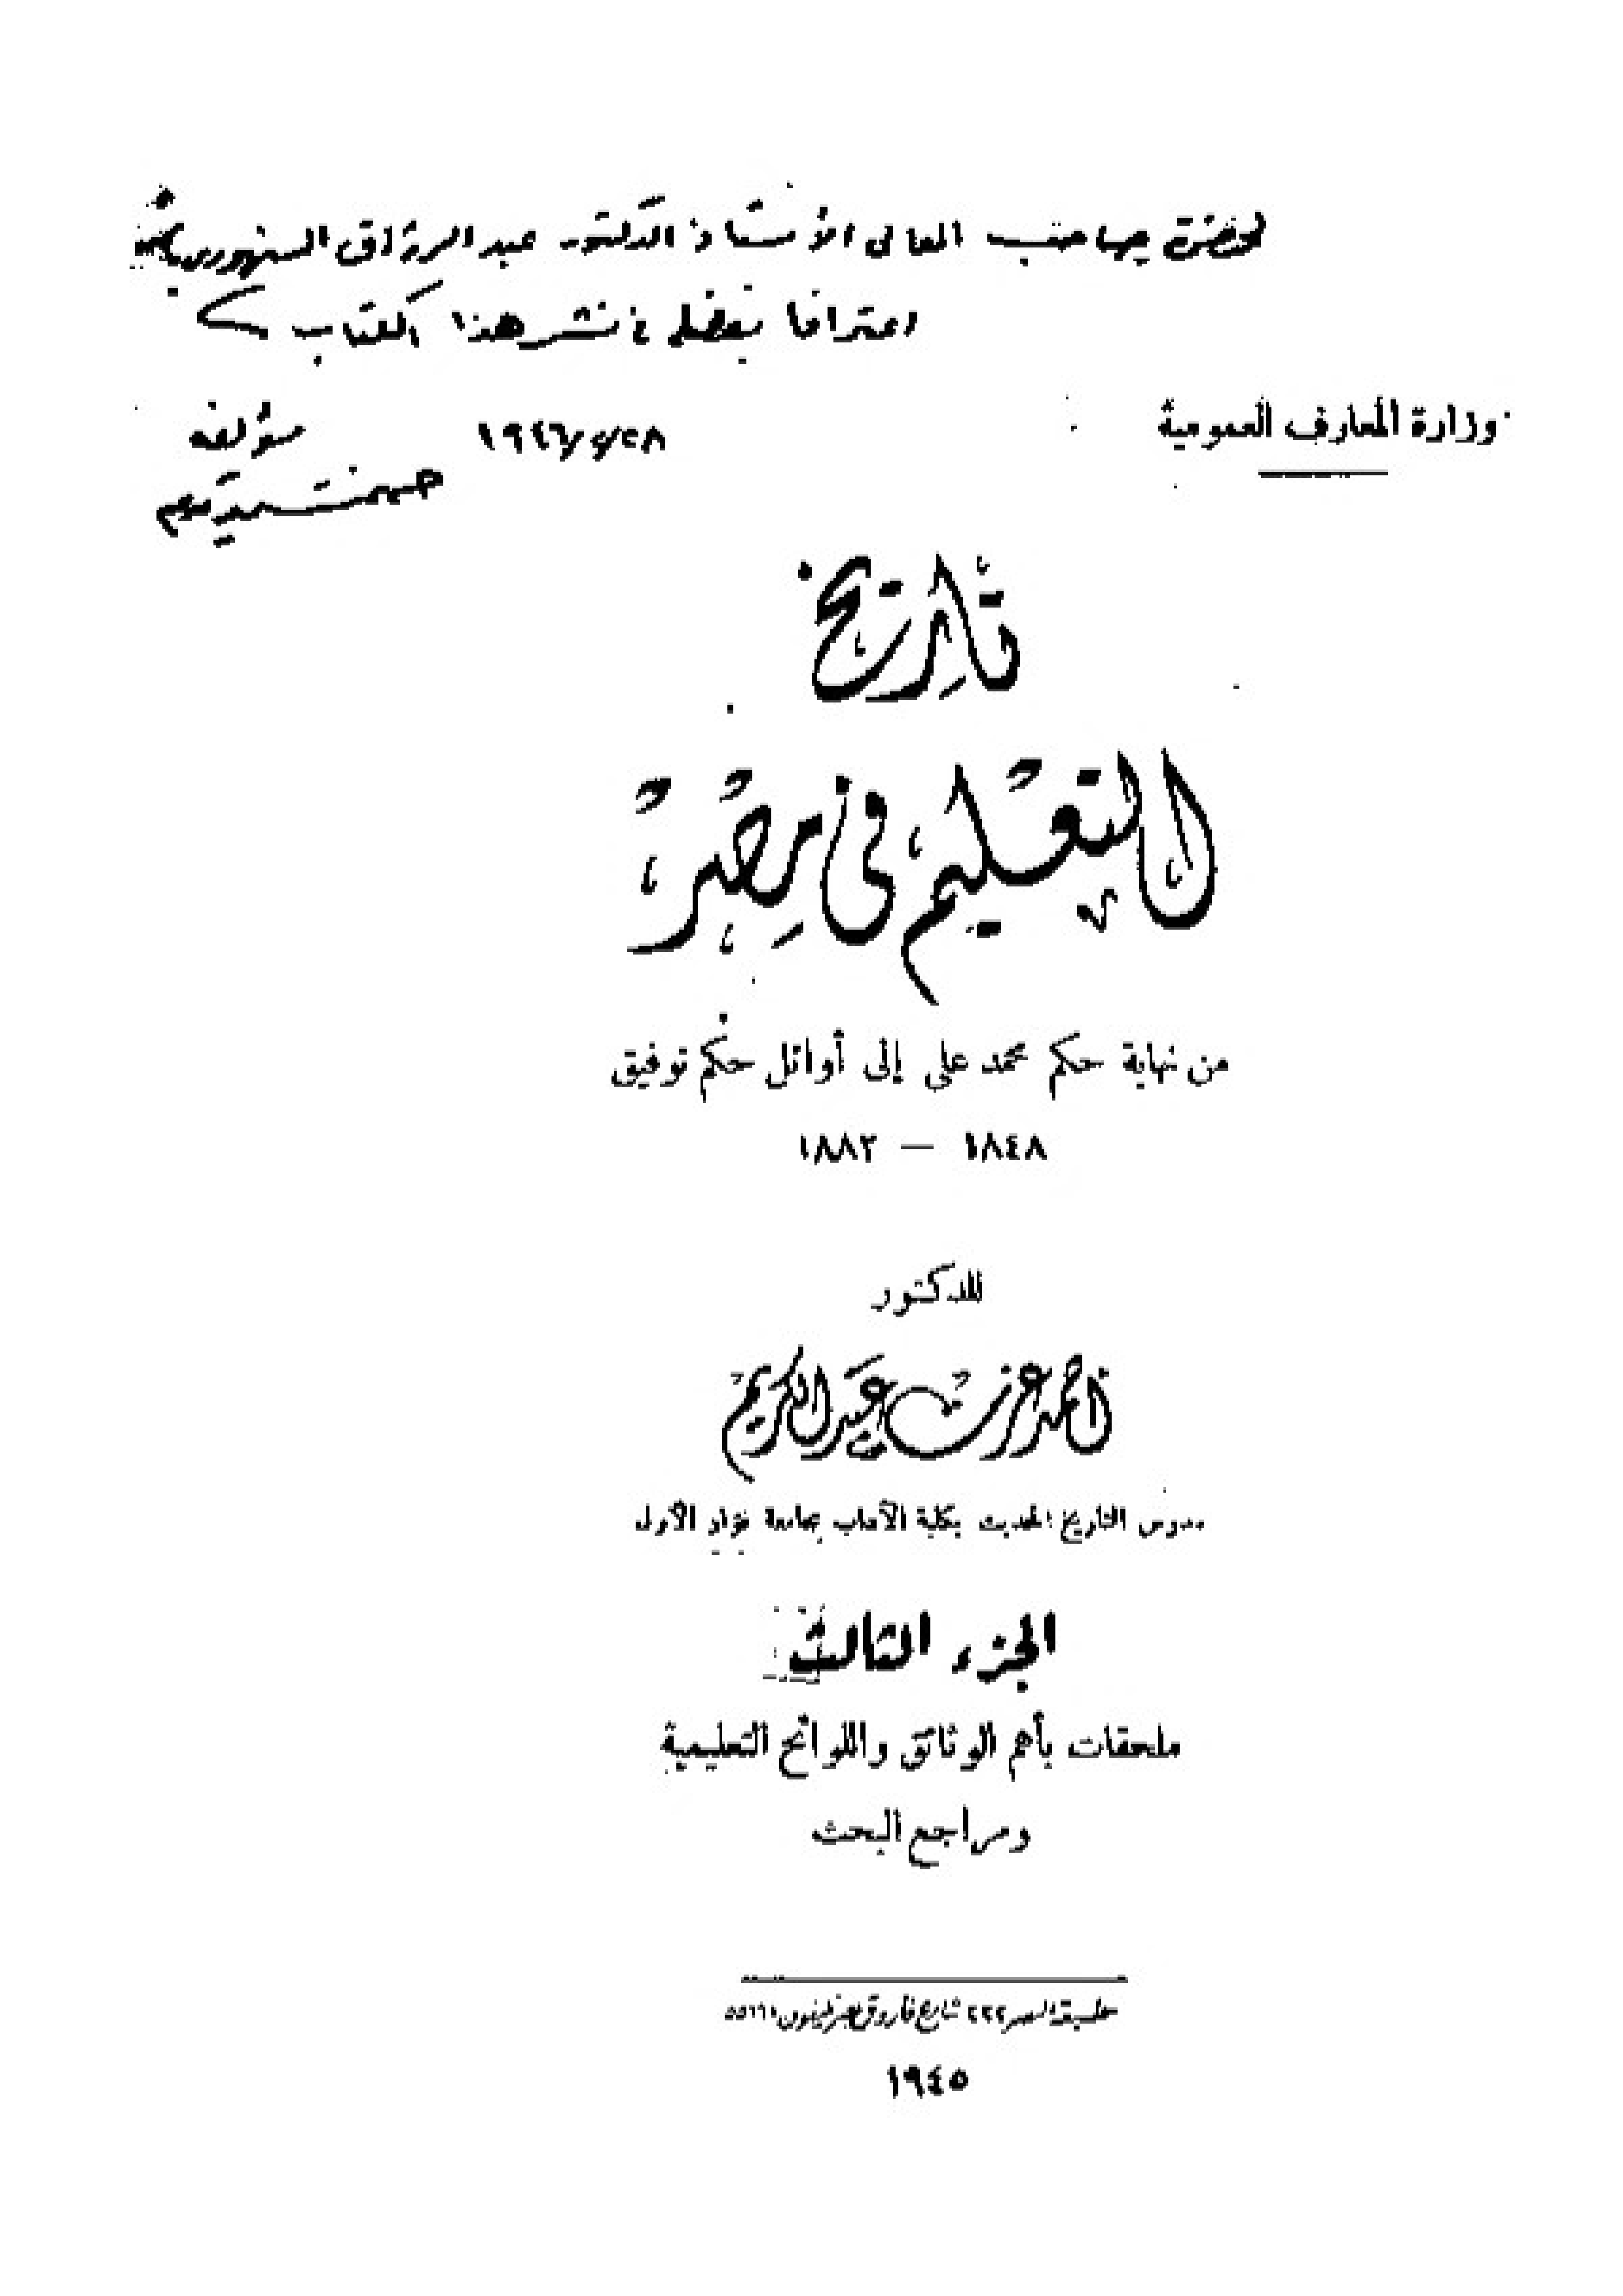 لحضرة صاحب المعالى الأستاذ الدكتور عبد الرزاق السنهورى باشا
اعترافا بفضله فى نشر هذا الكتاب
وزارة المعارف العمومية
مؤلفه
تاريخ
التعليم فى مصر
من نهاية حكم محمد على إلى أوائل حكم توفيق
١٨٤٨ — ١٨٨٢
للدكتور
أحمد عزت عبد الكريم
مدرس التاريخ الحديث بكلية الآداب بجامعة فؤاد الأول
الجزء الثالث
ملحقات بأهم الوثائق واللوائح التعليمية
ومراجع البحث
شارع فاروق بمصر تليفون
١٩٤٥